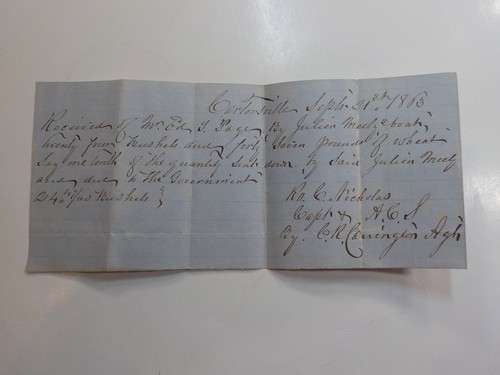 Cartersville Septr 21st 1863
Received of Mr. Ed. T. Page By Julien Meely's boat,
twenty four Bushels and forty seven pounds of wheat
Say one tenth of the quantity sent down by said Julien Meely
and due to The Government
24 47/60 Bushels
Ro. C. Nicholas
Capt & A.C.S
By. C.R. Carrington Agt